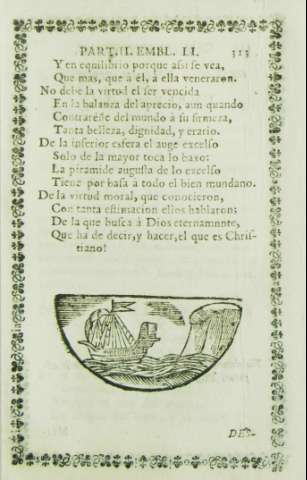 PART. II. EMBL. LI. 313
Y en equilibrio porque assi se vea,
Que mas, que à él, à ella veneraron.
No debe la virtud el ser vencida
En la balanza del aprecio, aun quando
Contrareste del mundo à su firmeza,
Tanta belleza, dignidad, y erario.
De la inferior esfera el auge excelso
Solo de la mayor toca lo baxo:
La piramide augusta de lo excelso
Tiene por basa à todo el bien mundano.
De la virtud moral, que conocieron,
Con tanta estimacion ellos hablaron:
De la que busca à Dios eternamnte,
Què hà de decir, y hacer, el que es Chris-
tiano!
DES-